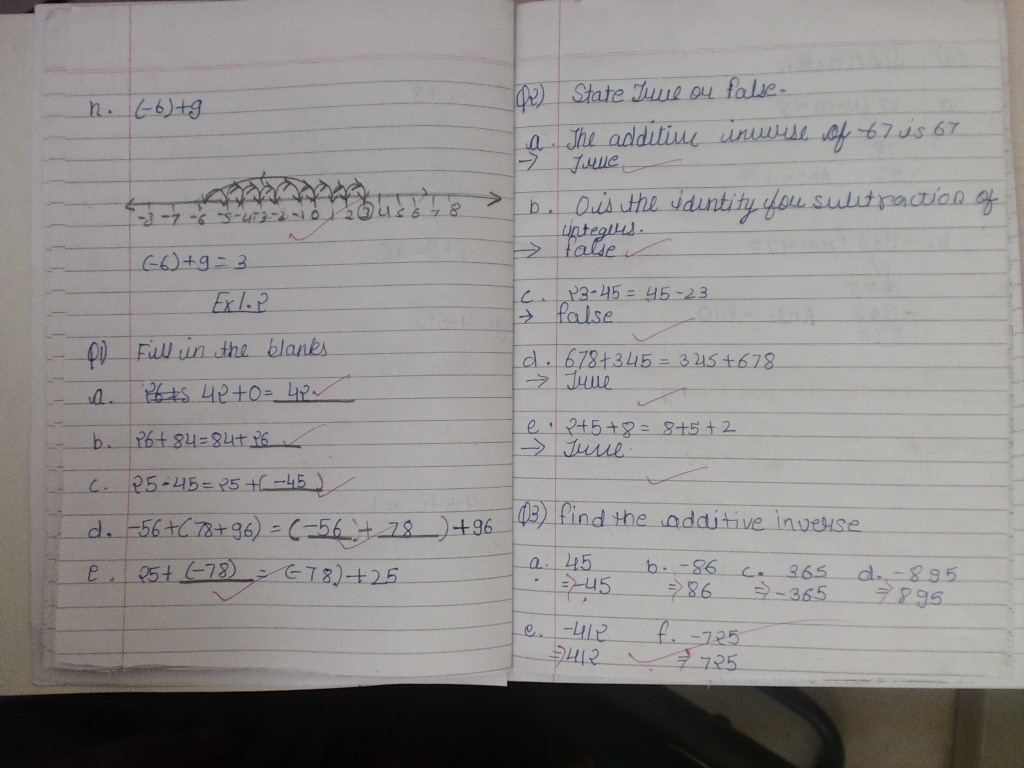 n. (-6)+9
-3 -7 -6 -5 -4 -3 -2 -1 0 1 2 3 4 5 6 7 8
(-6)+9 = 3
Ex 1.2
Q1) Fill in the blanks
a. 26+5 42+0= 42
b. 26+84=84+26
c. 25-45=25+(-45)
d. -56+(78+96) = (-56 + 78) +96
e. 25+ (-78) = (-78)+25
Q2) State True or False.
a. The additive inverse of -67 is 67
→ True
b. 0 is the identity for subtraction of
integers.
→ False
c. 23-45 = 45-23
→ False
d. 678+345 = 345+678
→ True
e. 2+5+8 = 8+5+2
→ True.
Q3) find the additive inverse
a. 45 b. -86 c. 365 d. -895
⇒ -45 ⇒ 86 ⇒ -365 ⇒ 895
e. -412 f. -725
⇒ 412 ⇒ 725